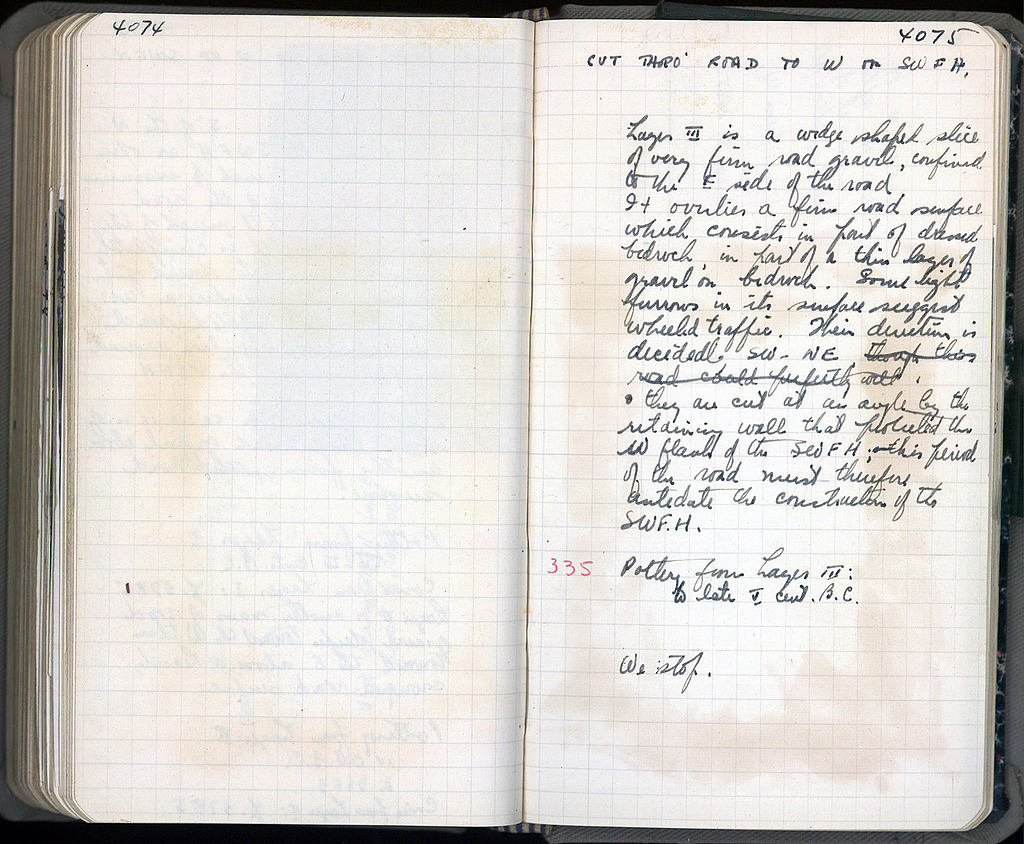 4074
4075
CUT THRO' ROAD TO W OF SWFH.
Layer III is a wedge shaped slice
of very firm road gravel, confined
to the E side of the road
It overlies a firm road surface
which consists in part of dressed
bedrock, in part of a thin layer of
gravel on bedrock. Some light
furrows in its surface suggest
wheeled traffic. Their direction is
decidedly SW-NE though this
road could perfectly well.
they are cut at an angle by the
retaining wall that protected the
W flank of the SWFH; this period
of the road must therefore
antedate the construction of the
SWF.H.
335 Pottery from Layer III:
to late V cent. B.C.
We stop.